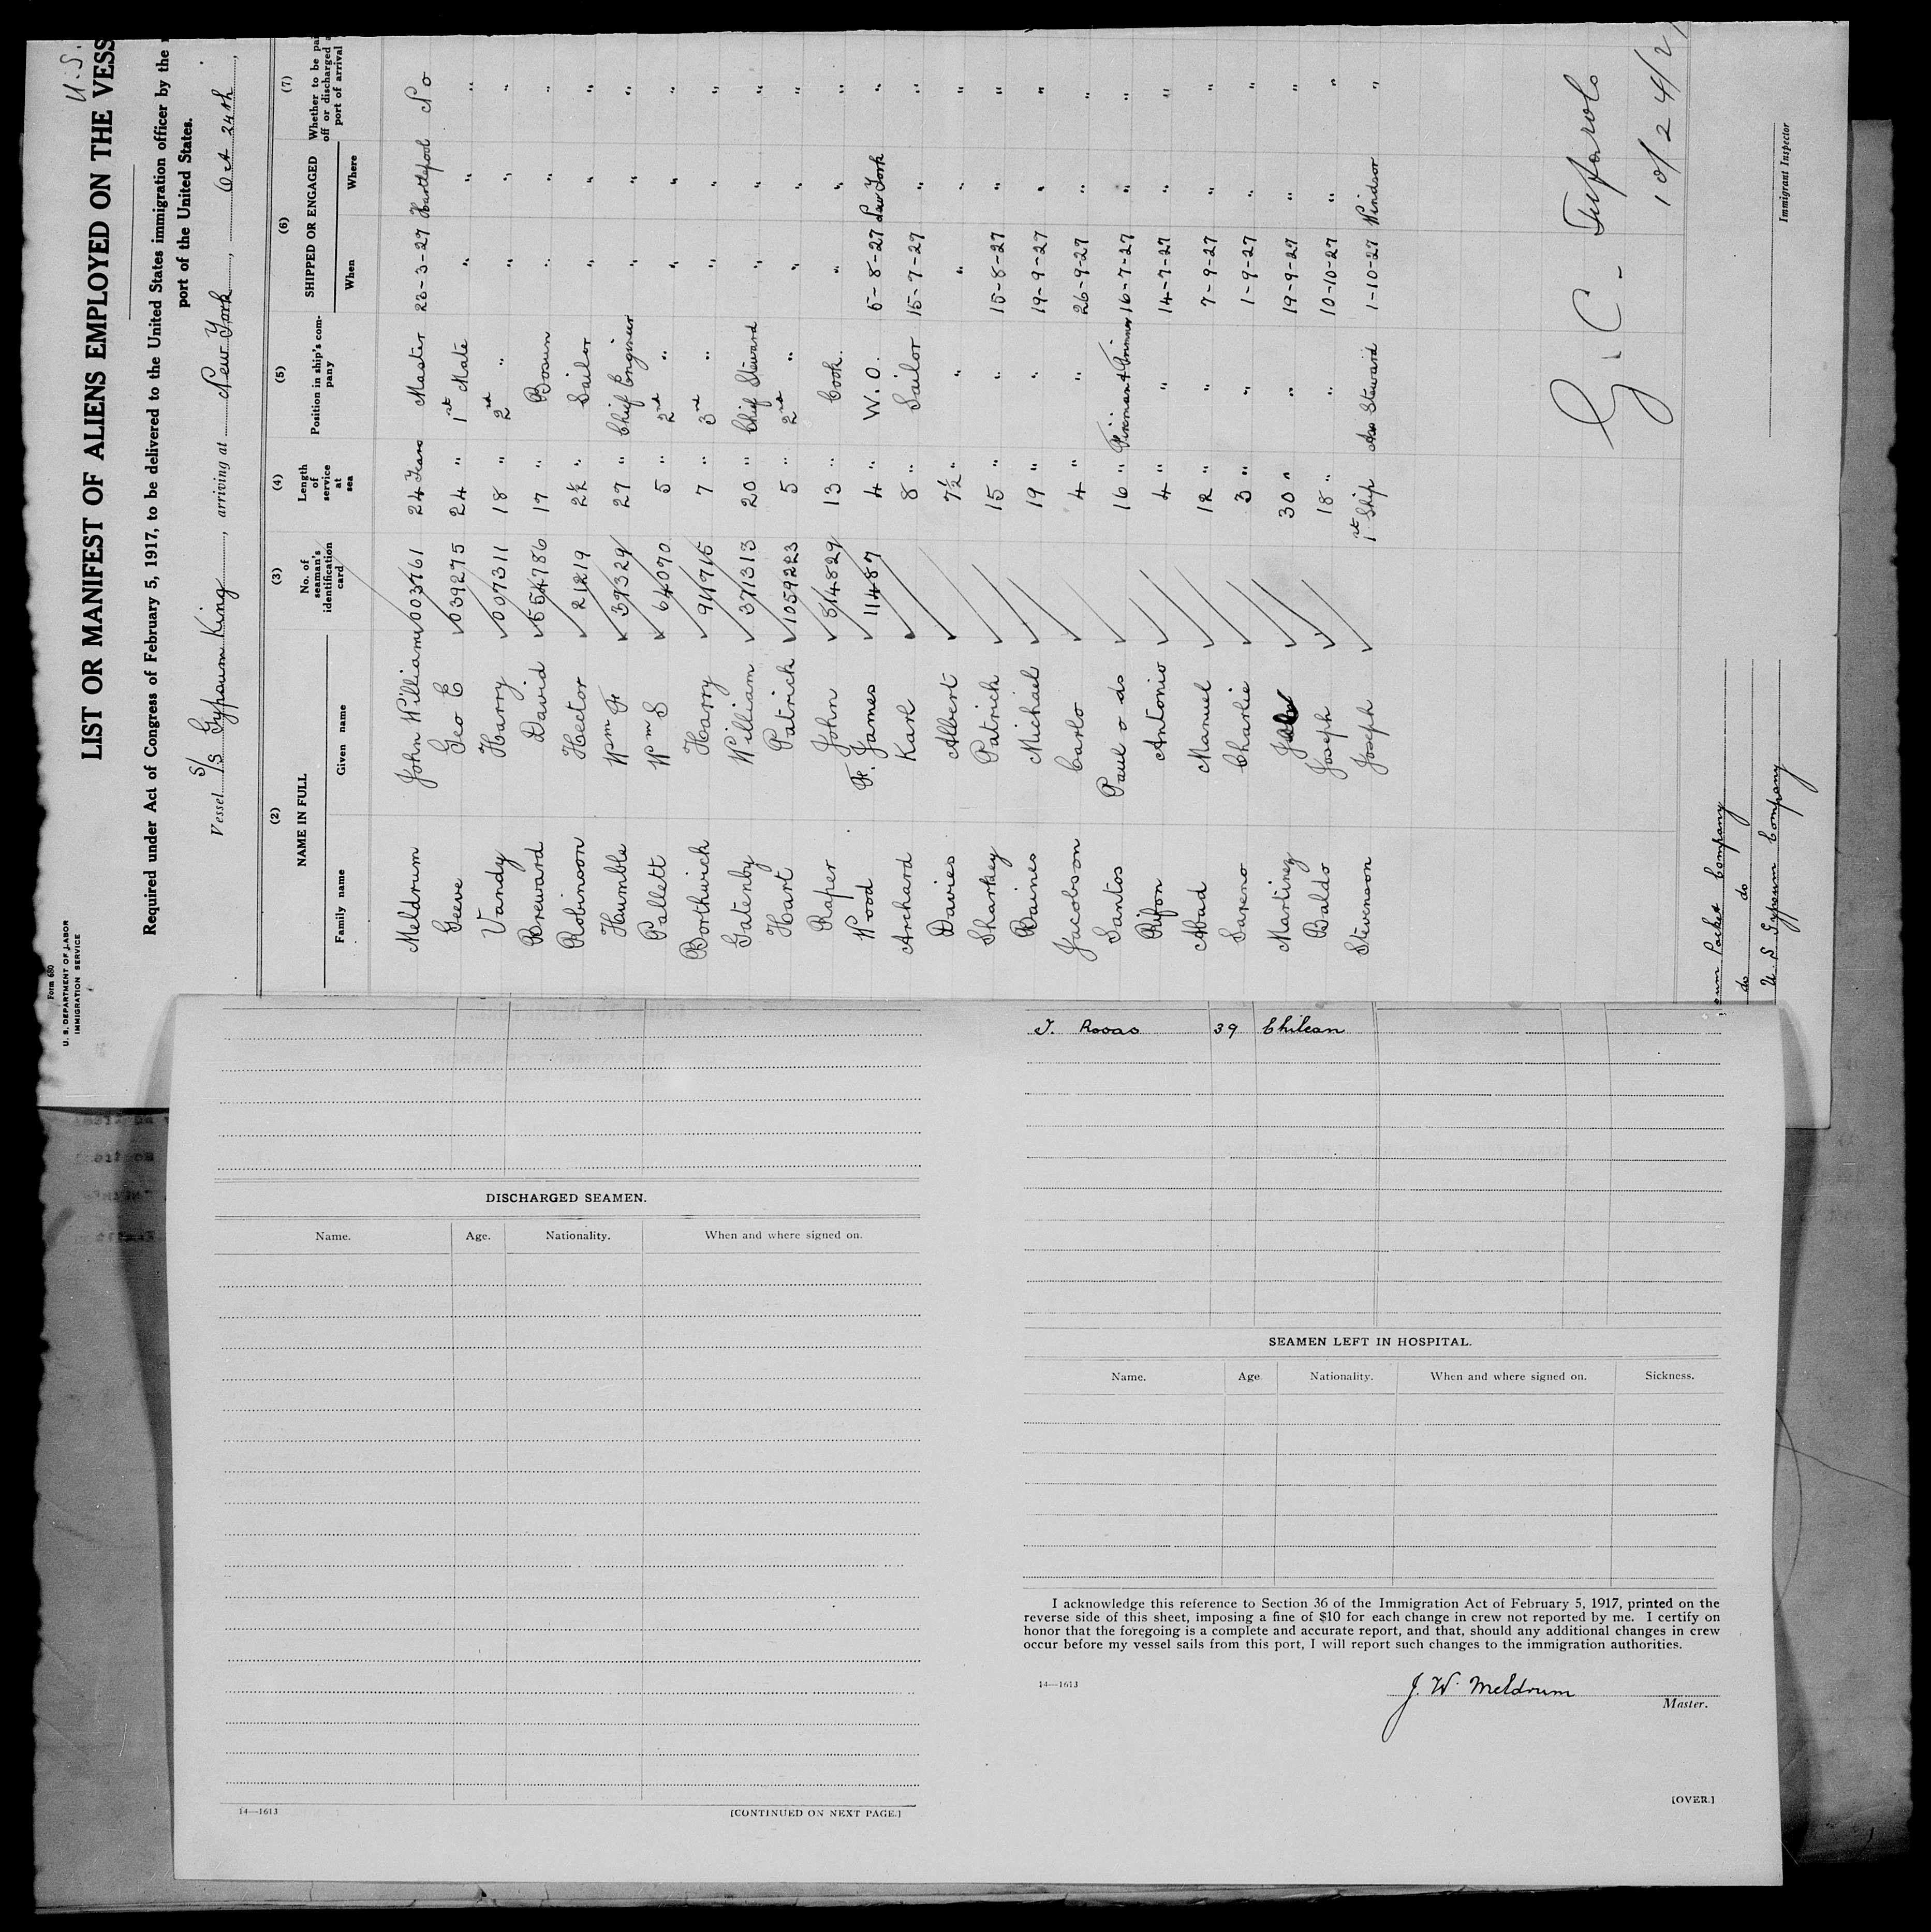 Form 680
U. S. DEPARTMENT OF LABOR
IMMIGRATION SERVICE
U.S.
LIST OR MANIFEST OF ALIENS EMPLOYED ON THE VESS
Required under Act of Congress of February 5, 1917, to be delivered to the United States immigration officer by the
port of the United States.
Vessel S/S Gypsum King, arriving at New York, Oct 24th,
(2) (3) (4) (5) (6) (7)
NAME IN FULL No. of seaman's identification card Length of service at sea Position in ship's company SHIPPED OR ENGAGED Whether to be pai off or discharged a port of arrival
Family name Given name When Where
Meldrum John William 003761 24 Years Master 22-3-27 Hartlepool No
Geeve Geo E 039275 24 " 1st Mate " " "
Vandy Harry 007311 18 " 2nd " " " "
Breward David 554786 17 " Bosun " " "
Robinson Hector 21219 2½ " Sailor " " "
Humble Wm Fr 39329 27 " Chief Engineer " " "
Pallett Wm S 64070 5 " 2nd " " " "
Borthwick Harry 911715 7 " 3rd " " " "
Gatenby William 371313 20 " Chief Steward " " "
Hart Patrick 1059223 5 " 2nd " " " "
Raper John 514829 13 " Cook. " " "
Wood Fr. James 11487 4 " W. O. 5-8-27 New York "
Archard Karl 8 " Sailor 15-7-27 " "
Davies Albert 7½ " " " " "
Sharkey Patrick 15 " " 15-8-27 " "
Baines Michael 19 " " 19-9-27 " "
Jacobson Carlo 4 " " 26-9-27 " "
Santos Paul o ds 16 " Fireman & Trimmer 16-7-27 " "
Rifon Antonio 4 " " 14-7-27 " "
Abad Manuel 12 " " 7-9-27 " "
Sareno Charlie 3 " " 1-9-27 " "
Martinez 30 " " 19-9-27 " "
Baldo Joseph 18 " " 10-10-27 " "
Stevenson Joseph 1st Ship Ass Steward 1-10-27 Windsor "
G. C. Tufarolo
10/24/27
sum Packet Company
do do
U. S. Gypsum Company
Immigrant Inspector
DISCHARGED SEAMEN.
Name. Age. Nationality. When and where signed on.
14—1613 [CONTINUED ON NEXT PAGE.]
J. Rosas 39 Chilean
SEAMEN LEFT IN HOSPITAL.
Name. Age. Nationality. When and where signed on. Sickness.
I acknowledge this reference to Section 36 of the Immigration Act of February 5, 1917, printed on the
reverse side of this sheet, imposing a fine of $10 for each change in crew not reported by me. I certify on
honor that the foregoing is a complete and accurate report, and that, should any additional changes in crew
occur before my vessel sails from this port, I will report such changes to the immigration authorities.
14—1613
J. W. Meldrum
Master.
[OVER.]